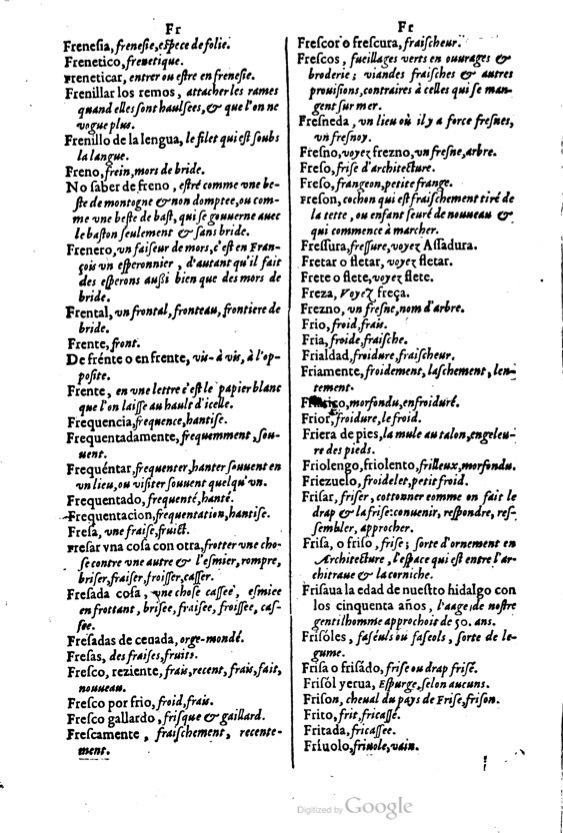 Fr
Frenesia, frenesie, espece de folie.
Frenetico, frenetique.
Freneticar, entrer ou estre en frenesie.
Frenillar los remos, attacher les rames
quand elles sont haulsees, & que l'on ne
vogue plus.
Frenillo de la lengua, le filet qui est soubs
la langue.
Freno, frein, mors de bride.
No saber de freno, estré comme vne be-
ste de montogne & non domptee, ou com-
me vne beste de bast, qui se gouuerne auec
le baston seulement & sans bride.
Frenero, vn faiseur de mors, c'est en Fran-
çois vn esperonnier, d'autant qu'il fait
des esperons außi bien que des mors de
bride.
Frental, vn frontal, fronteau, frontiere de
bride.
Frente, front.
De frénte o en frente, vis-à vis, à l'op-
posite.
Frente, en vne lettre c'est le papier blanc
que l'on laisse au hault d'icelle.
Frequencia, frequence, hantise.
Frequentadamente, frequemment, sou-
uent.
Frequéntar, frequenter, hanter souuent en
vn lieu, ou visiter souuent quelqu'vn.
Frequentado, frequenté, hanté.
Frequentacion, frequentation, hantise.
Fresa, vne fraise, fruict.
Fresar vna cosa con otra, frotter vne cho-
se contre vne autre & l'esmier, rompre,
briser, fraiser, froisser, casser.
Fresada cosa, vne chose cassee, esmiee
en frottant, brisee, fraisee, froissee, cas-
see.
Fresadas de ceuada, orge-mondé.
Fresas, des fraises, fruits.
Fresco, reziente, frais, recent, frais, fait,
nouueau.
Fresco por frio, froid, frais.
Fresco gallardo, frisque & gaillard.
Frescamente, fraischement, recente-
ment.
Fr
Frescor o frescura, fraischeur.
Frescos, fueillages verts en ouurages &
broderie; viandes fraisches & autres
prouisions, contraires à celles qui se man-
gent sur mer.
Fresneda, vn lieu où il y a force fresnes,
vn fresnoy.
Fresno, voyez frezno, vn fresne, arbre.
Freso, frise d'architecture.
Freso, frangeon, petite frange.
Freson, cochon qui est fraischement tiré de
la tette, ou enfant seuré de nouueau &
qui commence à marcher.
Fressura, fressure, voyez Assadura.
Fretar o fletar, voyez fletar.
Frete o flete, voyez flete.
Freza, Voyez freça.
Frezno, vn fresne, nom d'arbre.
Frio, froid, frais.
Fria, froide, fraische.
Frialdad, froidure, fraischeur.
Friamente, froidement, laschement, len-
tement.
morfondu, enfroiduré.
Frior, froidure, le froid.
Friera de pies, la mule au talon, engeleu-
re des pieds.
Friolengo, friolento, frilleux, morfondu.
Friezuelo, froidelet, petit froid.
Frisar, friser, cottonner comme on fait le
drap & la frise: conuenir, respondre, res-
sembler, approcher.
Frisa, o friso, frise; sorte d'ornement en
Architecture, l'espace qui est entre l'ar-
chitraue & la corniche.
Frisaua la edad de nuestto hidalgo con
los cinquenta años, l'aage de nostre
gentilhomme approchoit de 50. ans.
Frisóles, faséuls ou faseols, sorte de le-
gume.
Frisa o frisádo, frise ou drap frisé.
Frisól yerua, Espurge, selon aucuns.
Frison, cheual du pays de Frise, frison.
Frito, frit, fricassé.
Fritada, fricassee.
Fríuolo, friuole, vain.
Digitized by Google